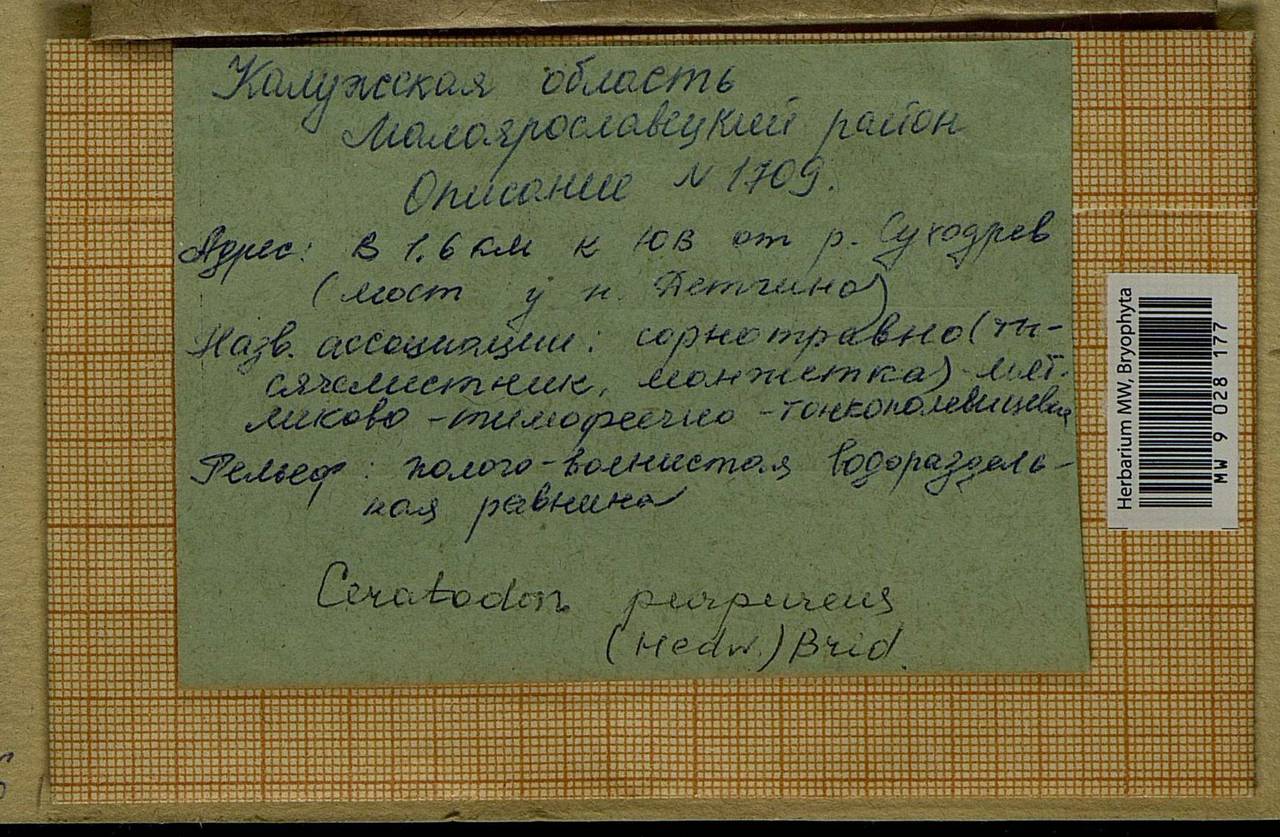 Калужская область
Малоярославецкий район
Описание N 1709.
Адрес: В 1.6 км к ЮВ от р. Суходрев
(мост у н. Детчино)
Назв. ассоциации: сорнотравно (ты-
сячелистник, манжетка) - мят-
ликово - тимофеечно - тонкополевицевая
Рельеф: полого-волнистая водораздель-
ная равнина
Ceratodon purpureus
(Hedw.) Brid.
Herbarium MW, Bryophyta
MW 9 028 177